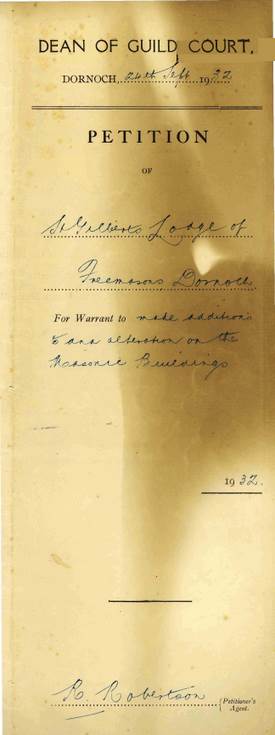 DEAN OF GUILD COURT,
DORNOCH, 24th Sept. 1932
PETITION
OF
St Gilberts Lodge of
Freemasons, Dornoch
For Warrant to make additions
to and alteration on the
Masonic Buildings
1932.
R. Robertson {Petitioner's Agent.